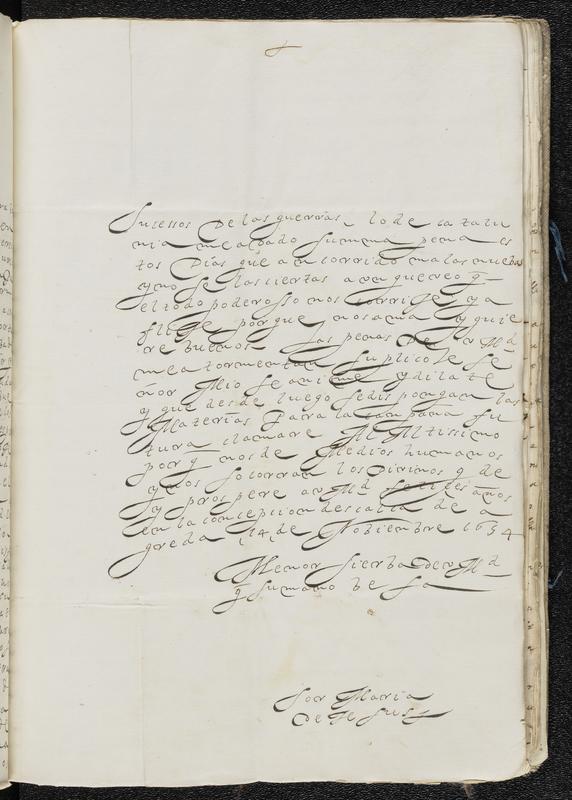 Sucessos De las guerras, lo de catalu
nia me a dado summa pena es
tos Dias que an corrido malas nuebas
y no se las ciertas aun que creo q
el todo poderosso nos corrige y a
flige porque nos ama y quie
re buenos Las penas De V Md
me atormentan suplicole Se
ñor Mio se anime y dilate
y que desde luego se dispongan las
Materias Para la campana fu
tura clamare Al Altissimo
por q nos de Medios humanos
y nos socorran los Divinos q de
y prospere a V Md felices años
en la concepcion descalça de a
greda 14, de Nobiembre 1654
Menor Sierba De V Md
q su mano be sa
Sor Maria
De Jesus